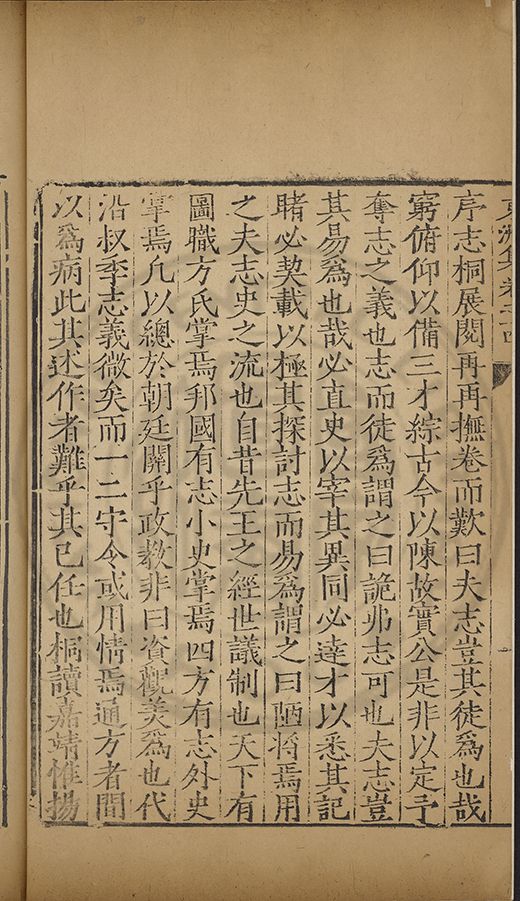 東洲集卷十四
序志桐展閱再再撫卷而歎曰夫志豈其徒為也哉
窮俯仰以備三才綜古今以陳故實公是非以定予
奪志之義也志而徒為謂之曰詭弗志可也夫志豈
其易為也哉必直史以宰其異同必達才以悉其記
睹必契載以極其探討志而易為謂之曰陋將焉用
之夫志史之流也自昔先王之經世議制也天下有
圖職方氏掌焉邦國有志小史掌焉四方有志外史
掌焉凡以總於朝廷關乎政教非曰資觀美為也代
沿叔季志義微矣而一二守令或用情焉通方者間
以為病此其述作者難乎其已任也桐讀嘉靖惟揚